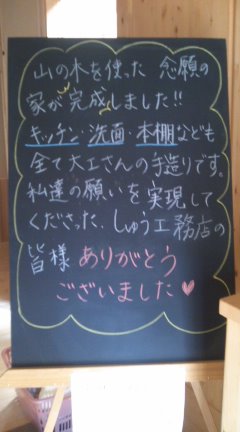 山の木を使った 念願の
家が完成しました!!
キッチン・洗面・本棚なども
全て大工さんの手造りです。
私達の願いを実現して
くださった、しゅう工務店の
皆様 ありがとう
ございました♥